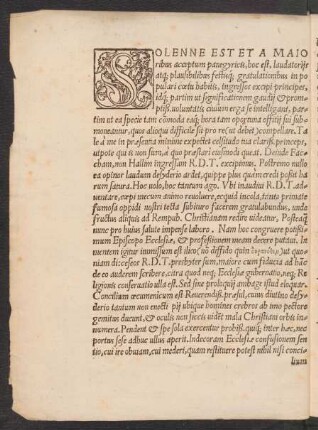 SOLENNE EST ET A MAIO
ribus acceptum panegyricis, hoc est, laudatorijs
atq; plausibilibus festisq; gratulationibus in po
pulari cœtu habitis, ingressos excipi principes,
idq; partim ut significationem gaudij & prom=
ptiss. uoluntatis ciuium erga se intelligant, par=
tim ut ea specie tam cõmoda eaq; hora tam oportuna officij sui sub=
moneantur, quos alioqui difficile sit pro re ut debet cõpellare. Ta
le à me in præsentia minime expectet celsitudo tua clariss. princeps,
utpote qui is non sum, à quo præstari eiusmodi queat. Deinde Fa
cham, non Hallim ingressam R. D. T. excipimus. Postremo nullo
ea opinor laudum desyderio ardet, quippe plus quàm credi possit ha
rum satura. Hoc uolo, hoc tantum ago. Vbi in auditu R. D. T. ad=
uentare, cœpi mecum animo reuoluere, ecquid incolæ, trinis primate
fumosi oppidi nostri tecta subituro facerem gratulabundus, unde
fructus aliquis ad Rempub. Christianam redire uideatur. Postea
nunc pro huius salute impense laboro. Nam hoc congruere potissi=
mum Episcopo Ecclesiæ, & professionem meam decere putaui. In
mentem igitur immissum est
quo=
niam diceset R. D. T. presbyter sum, maiore cum fiducia ad hãc
de eo audeam scribere, citra quod neq; Ecclesiæ gubernatio, neq; Re
ligionis conseruatio ulla est. Sed sine proloquij ambage istud eloquar.
Concilium œcumenicum est Reuerendiss. præsul, cuius diutino desy=
derio tantum non enecti pij ubique homines crebros ab imo pectore
gemitus ducunt, & oculis non siccis uidẽt mala Christiani orbis in=
numera. Pendent & spe sola exercentur probiss. quiq; inter hæc, ne
portus sese adhuc ullus aperit. Indecoram Ecclesiæ confusionem sen
tio, cui ire obuiam, cui mederi, quam restituere potest nihil nisi conci=
lium